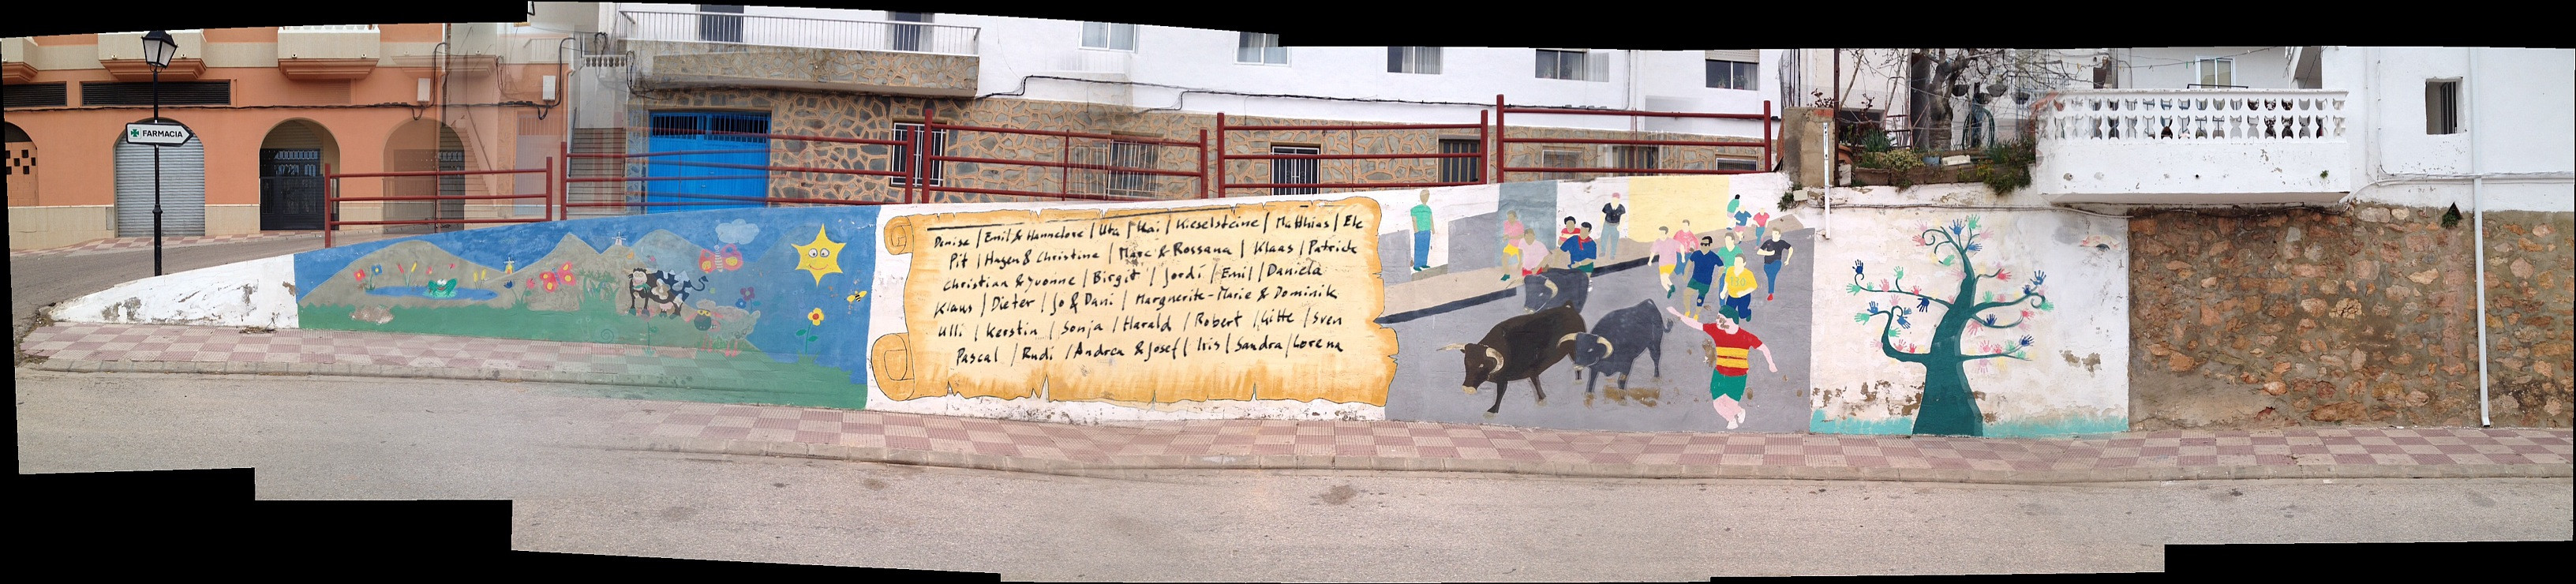 FARMACIA
Denise | Emil & Hannelore | Uta | Kai | Kieselsteine | Matthias | Ele
Pit | Hagen & Christine | Marc & Rossana | Klaas | Patrick
Christian & Yvonne | Birgit | Jordi | Emil | Daniela
Klaus | Dieter | Jo & Dani | Marguerite-Marie & Dominik
Ulli | Kerstin | Sonja | Harald | Robert | Gitte | Sven
Pascal | Rudi | Andrea & Josef | Iris | Sandra | Lorena